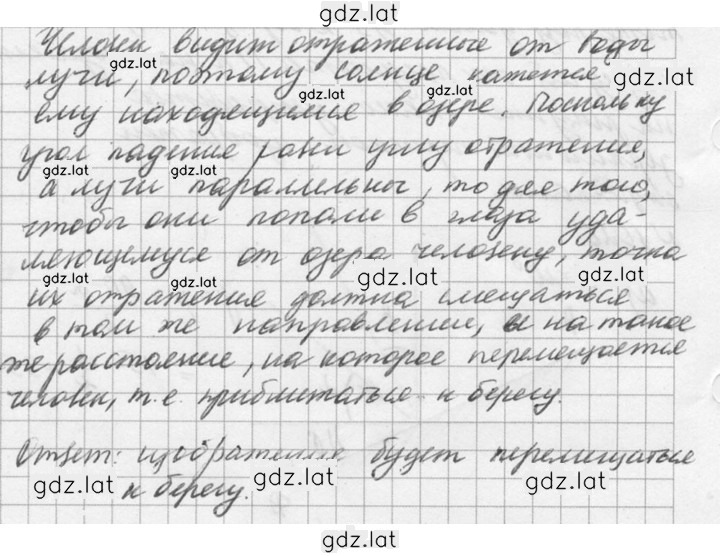 gdz.lat
Человек видит отраженные от воды
gdz.lat
лучи, поэтому солнце кажется
gdz.lat
gdz.lat
ему находящимся в озере. Поскольку
угол падения равен углу отражения,
gdz.lat
gdz.lat
а лучи параллельны, то для того,
чтобы они попали в глаза уда-
ляющемуся от озера человеку, точка
gdz.lat
gdz.lat
gdz.lat
их отражения должна смещаться
в том же направлении, и на такое
же расстояние, на которое перемещается
человек, т.е. приближаться к берегу.
Ответ: изображение будет перемещаться
gdz.lat
gdz.lat
gdz.lat
к берегу.
gdz.lat